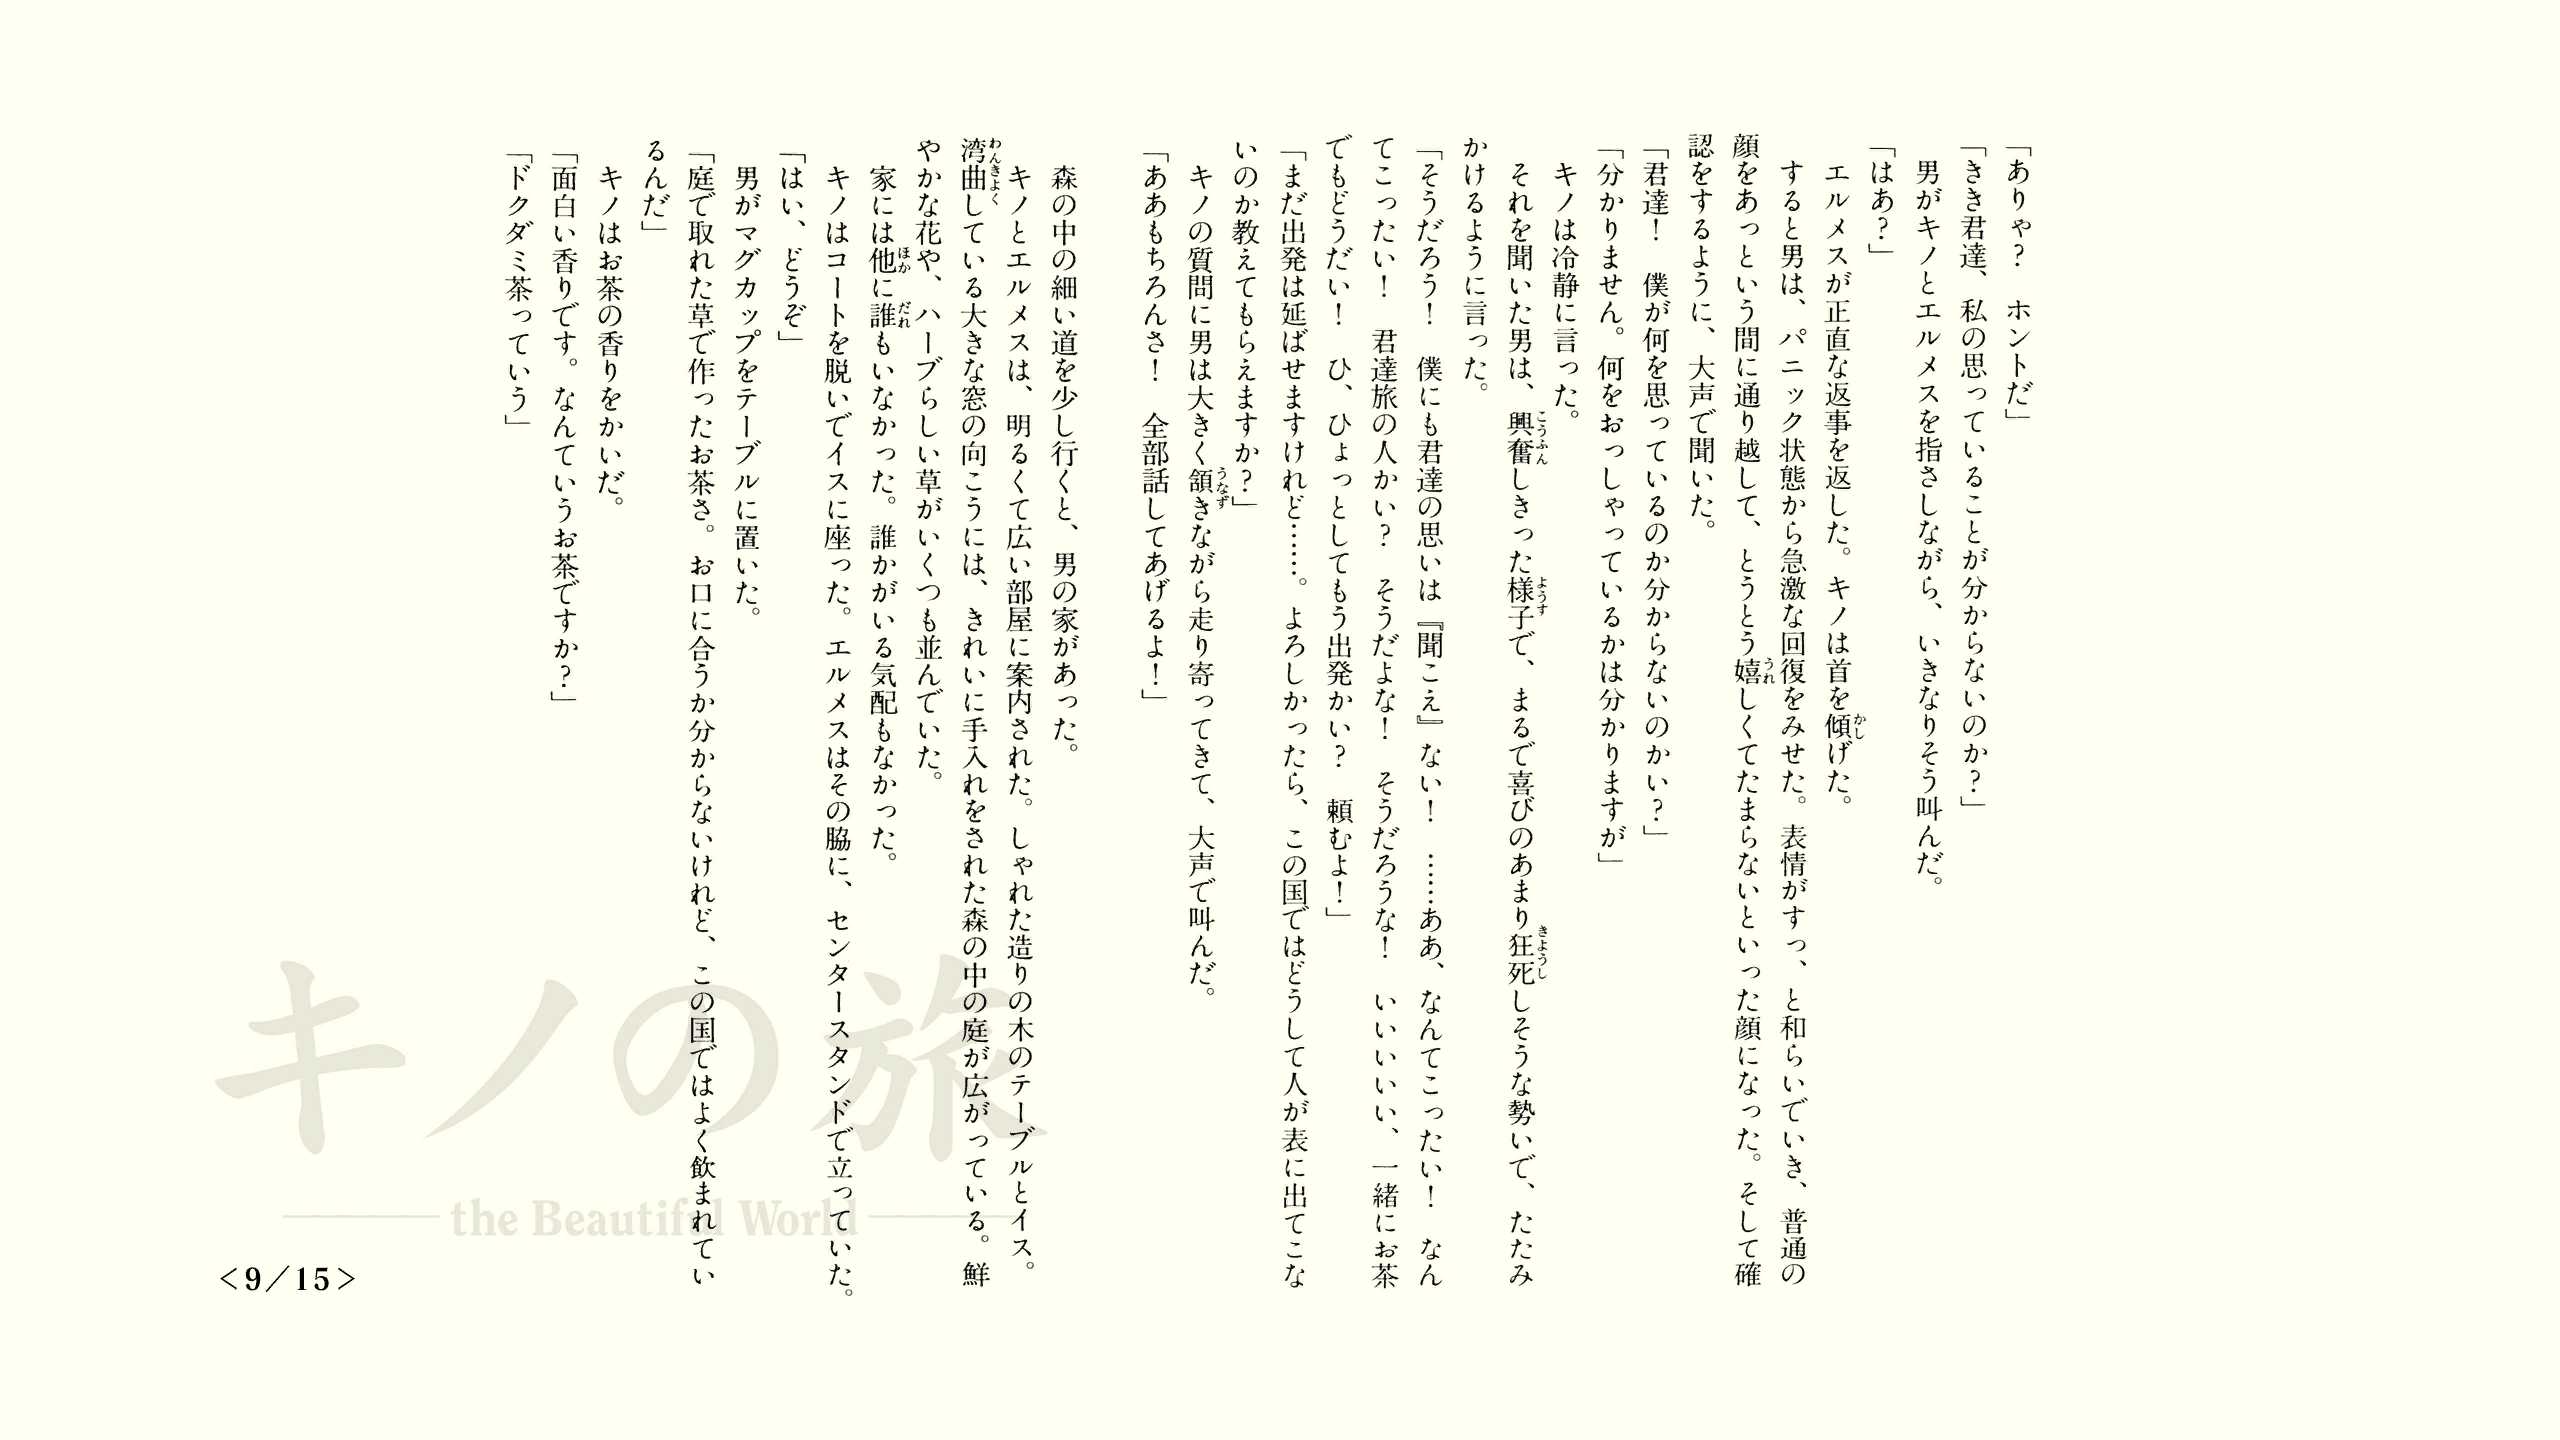 「ありゃ？　ホントだ」
「きき君達、私の思っていることが分からないのか？」
　男がキノとエルメスを指さしながら、いきなりそう叫んだ。
「はあ？」
　エルメスが正直な返事を返した。キノは首を傾げた。
　すると男は、パニック状態から急激な回復をみせた。表情がすっ、と和らいでいき、普通の
顔をあっという間に通り越して、とうとう嬉しくてたまらないといった顔になった。そして確
認をするように、大声で聞いた。
「君達！　僕が何を思っているのか分からないのかい？」
「分かりません。何をおっしゃっているかは分かりますが」
　キノは冷静に言った。
　それを聞いた男は、興奮しきった様子で、まるで喜びのあまり狂死しそうな勢いで、たたみ
かけるように言った。
「そうだろう！　僕にも君達の思いは『聞こえ』ない！　……ああ、なんてこったい！　なん
てこったい！　君達旅の人かい？　そうだよな！　そうだろうな！　いいいいい、一緒にお茶
でもどうだい！　ひ、ひょっとしてもう出発かい？　頼むよ！」
「まだ出発は延ばせますけれど……。よろしかったら、この国ではどうして人が表に出てこな
いのか教えてもらえますか？」
　キノの質問に男は大きく頷きながら走り寄ってきて、大声で叫んだ。
「ああもちろんさ！　全部話してあげるよ！」
　森の中の細い道を少し行くと、男の家があった。
　キノとエルメスは、明るくて広い部屋に案内された。しゃれた造りの木のテーブルとイス。
湾曲している大きな窓の向こうには、きれいに手入れをされた森の中の庭が広がっている。鮮
やかな花や、ハーブらしい草がいくつも並んでいた。
　家には他に誰もいなかった。誰かがいる気配もなかった。
　キノはコートを脱いでイスに座った。エルメスはその脇に、センタースタンドで立っていた。
「はい、どうぞ」
　男がマグカップをテーブルに置いた。
「庭で取れた草で作ったお茶さ。お口に合うか分からないけれど、この国ではよく飲まれてい
るんだ」
　キノはお茶の香りをかいだ。
「面白い香りです。なんていうお茶ですか？」
「ドクダミ茶っていう」
キノの旅
the Beautiful World
＜9／15＞